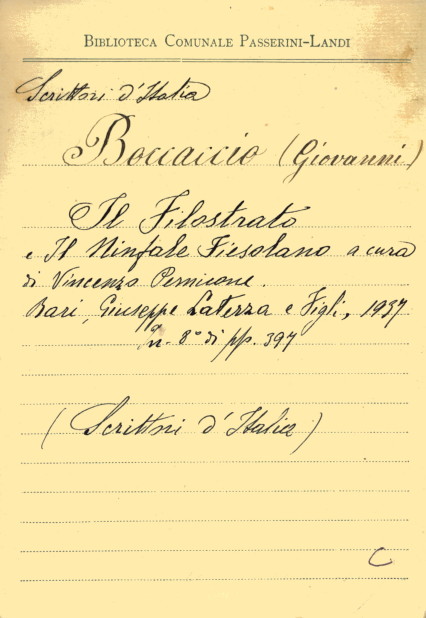 BIBLIOTECA COMUNALE PASSERINI-LANDI
Scrittori d'Italia
Boccaccio (Giovanni)
Il Filostrato
e Il Ninfale Fiesolano a cura
di Vincenzo Pernicone.
Bari, Giuseppe Laterza e Figli, 1937
in 8° di pp. 397
(Scrittori d'Italia)
C